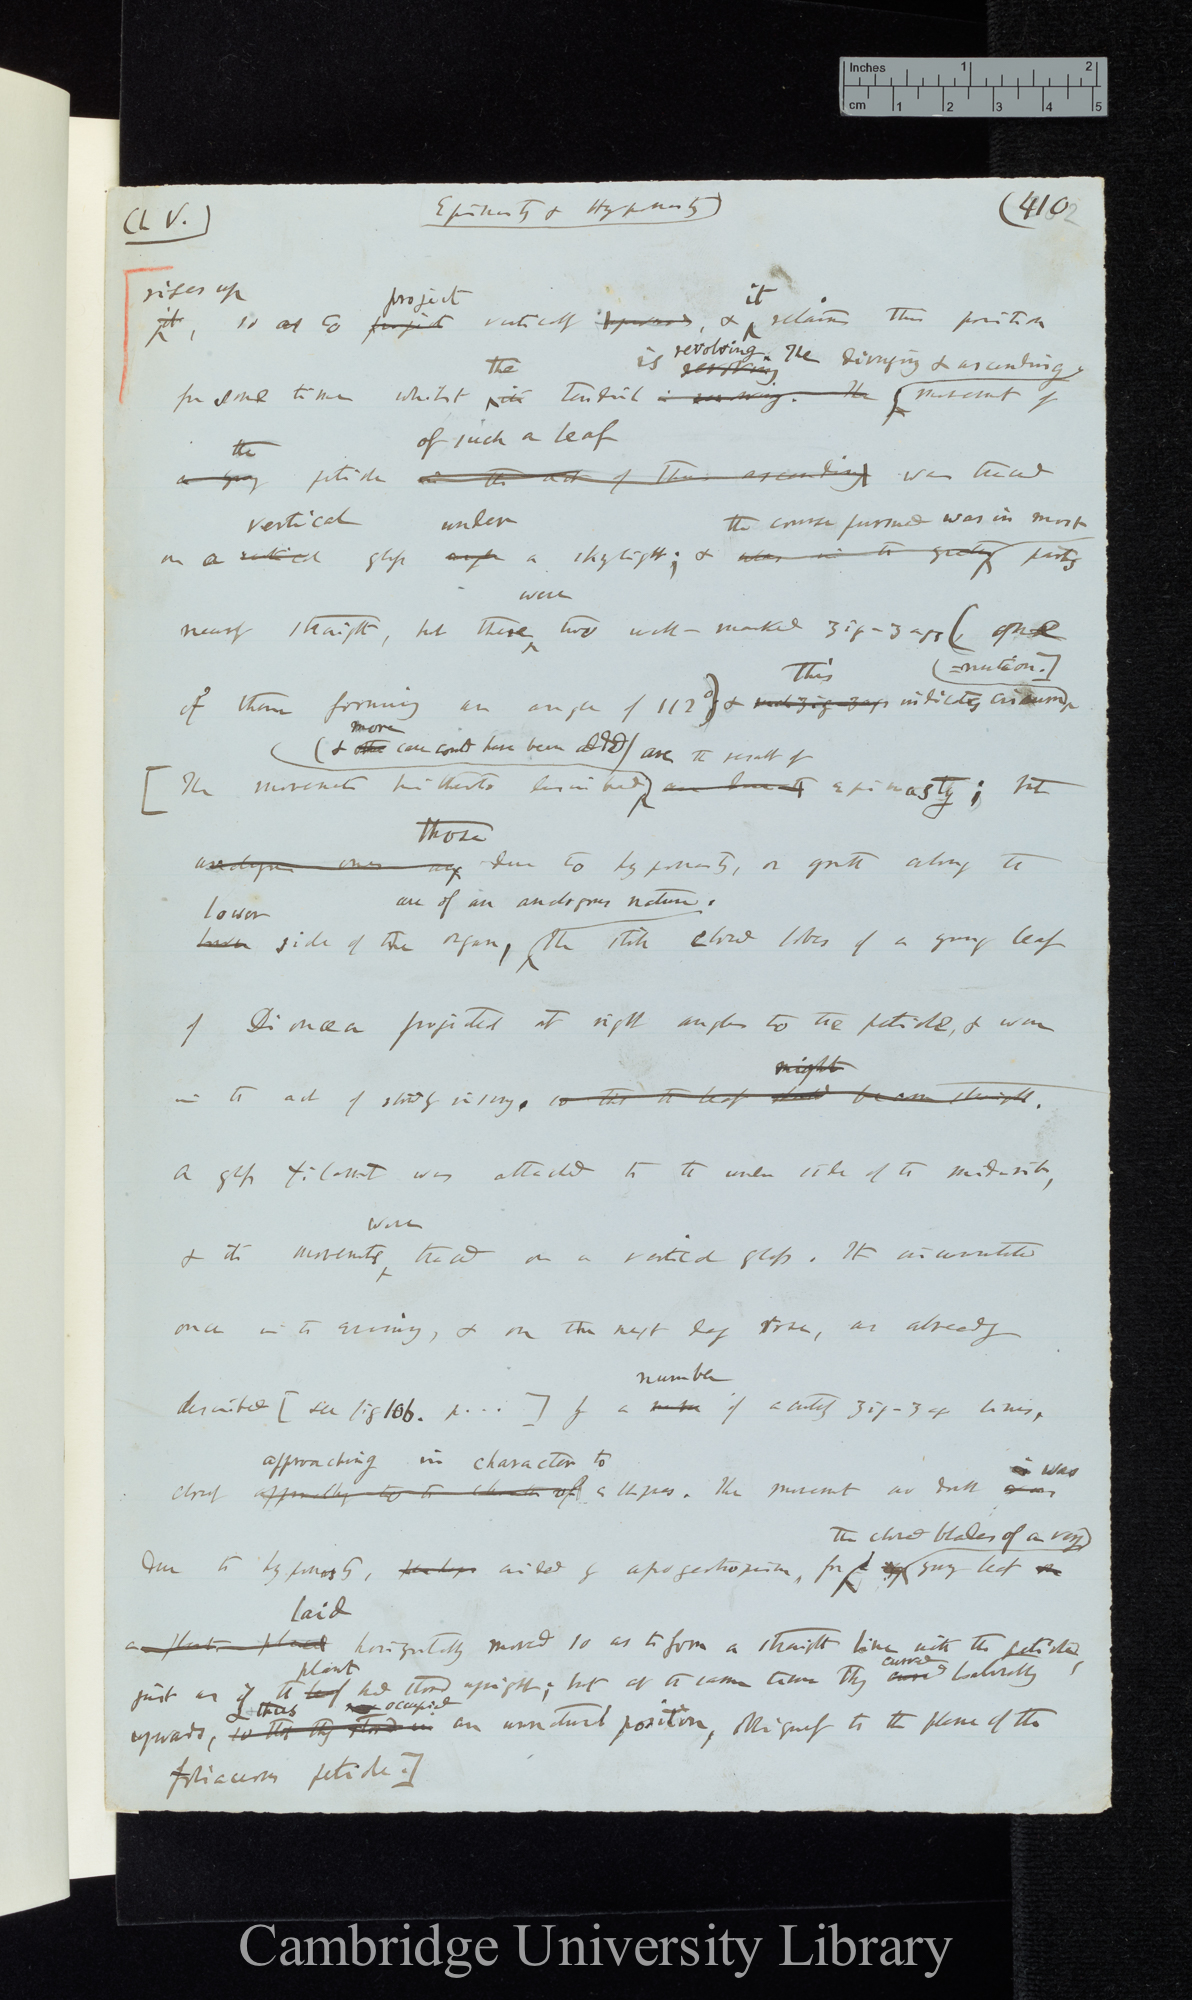 Inches 1 2
cm 1 2 3 4 5
(L V.)
Epinasty & Hyponasty)
(410
rises up project it
it, so as to project vertically, & retains this position
the is revolving. The diverging & ascending
for some time whilst its tendril is revolving. The movement of
the of such a leaf
a young petiole in the act of thus ascending was traced
vertical under the course pursued was in most
on a vertical glass under a skylight; & was in the greater part
were
nearly straight, but there two well-marked zig-zags ( one
This =nutation.]
of them forming an angle of 112°) & indicates circum
more
(& one case could have been added) are the result of
[The movements hitherto described epinasty; but
those
analogous ones due to hyponasty, or growth along the
lower are of an analogous nature.
lower side of the organ, The still closed lobes of a young leaf
of Dionæa projected at right angles to the petiole, & were
might
in the act of slowly rising. so that the leaf should become straight.
A glass filament was attached to the under side of the midrib,
were
& its movements traced on a vertical glass. It circumnutated
once in the evening, & on the next day rose, as already
number
described [see fig 106. p...] by a of acutely zig-zag lines,
approaching in character to
closely approaching to the character of ellipses. The movement no doubt was
the closed blades of a very
due to hyponasty, perhaps aided by apogeotropism, for young leaf on
laid
a plant placed horizontally moved so as to form a straight line with the petiole,
plant curved
just as if the leaf had stood upright; but at the same time they curved laterally
& thus occupied
upwards, so that they stood in an unnatural position, obliquely to the plane of the
foliaceous petiole.]
Cambridge University Library